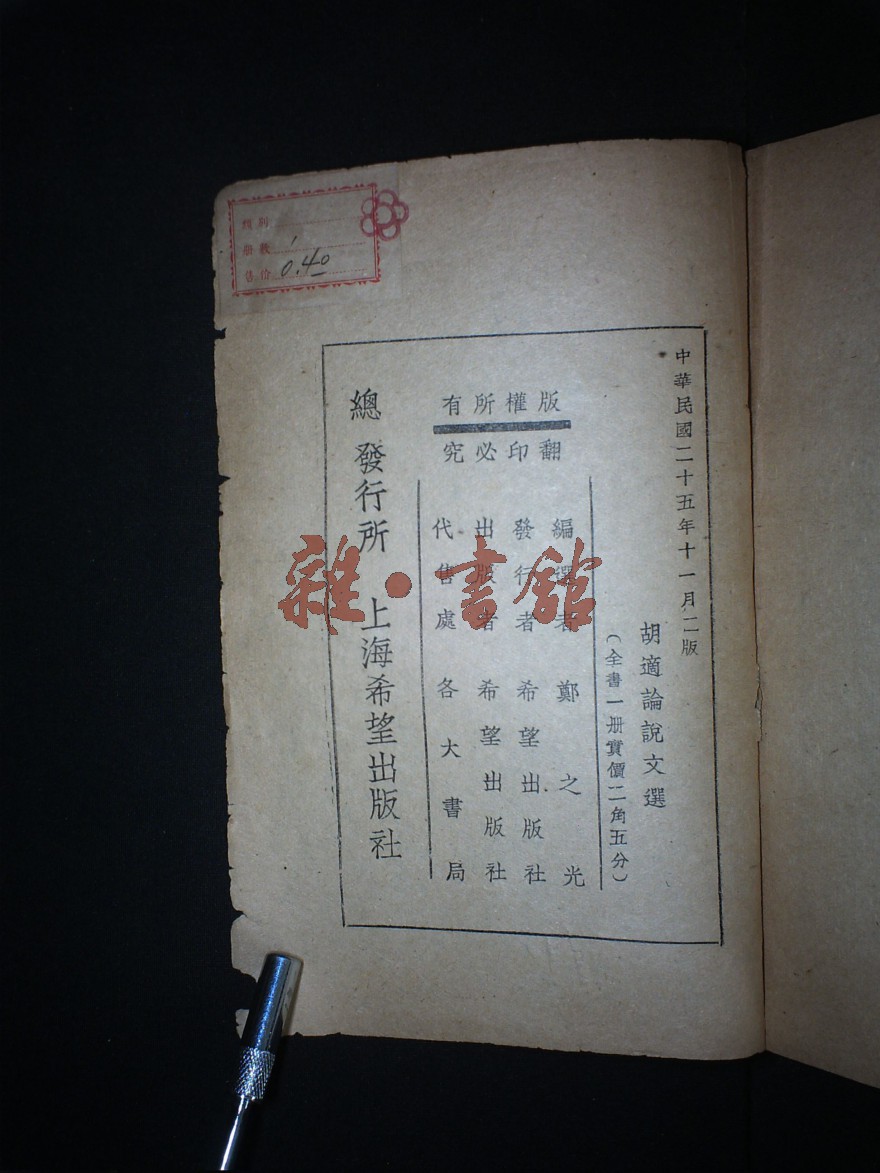 中華民國二十五年十一月二版
胡適論說文選
（全書一册實價二角五分）
版權所有
翻印必究
編選者 鄭之光
發行者 希望出版社
出版者 希望出版社
代售處 各大書局
總發行所 上海希望出版社
類別
册数 1
售价 0.40
雜·書館